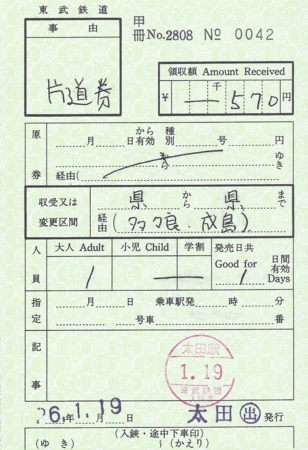 東武鉄道
甲
冊 No.2808 № 0042
事由
片道券
領収額 Amount Received
¥ 千570円
原券
月 日 から有効 種別 号 円
から ゆき
経由( )
収受又は変更区間
県 から 県 まで
経由 (多々良、成島)
人員
大人 Adult 小児 Child 学割 発売日共
1 Good for 1 日間有効 Days
指定
月 日 乗車駅発 時 分
号車 番
記事
太田駅
1.19
東武鉄道
26.1.19
年 月 日
太田 出 発行
(入鋏・途中下車印)
(ゆき) 〜(かえり)